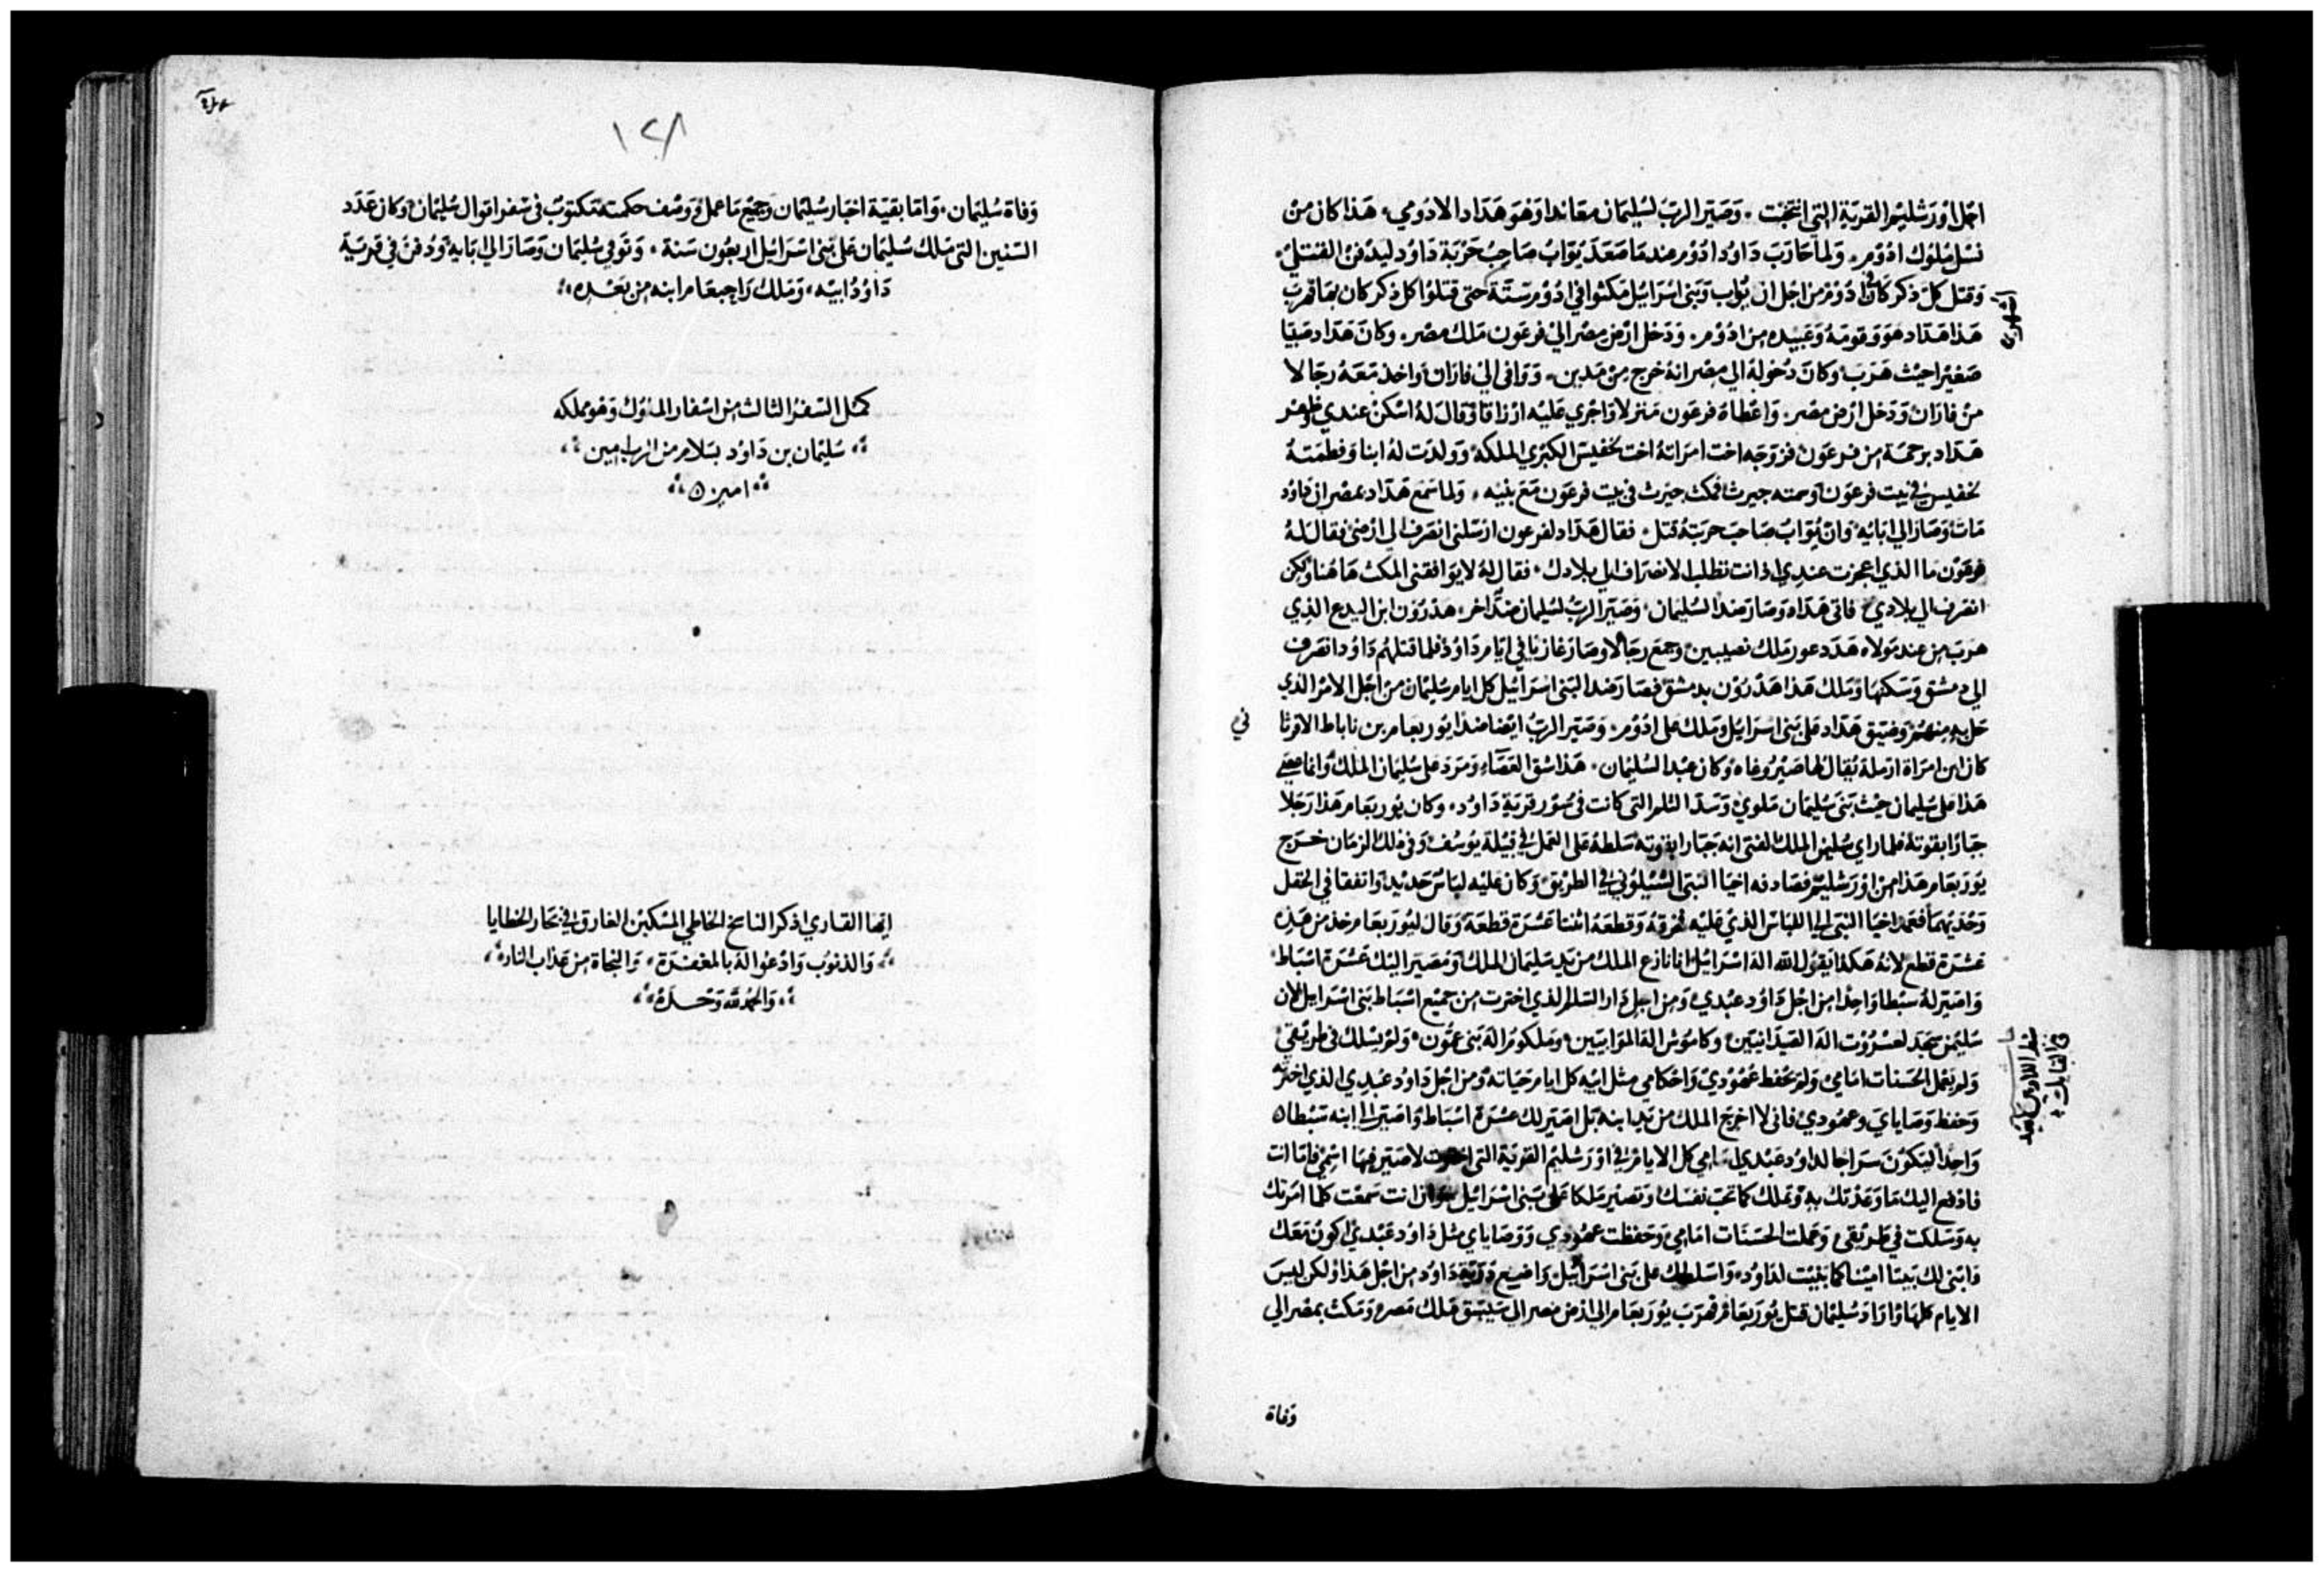 اجل اورشليم القرية التي انتخبت . وصير الرب لسليمان معاندا وهو هداد الادومي . هذا كان من
نسل ملوك ادوم . ولما حارب داود ادوم عندما صعد يواب صاحب حربة داود ليدفن القتلي .
وقتل كل ذكر كان في ادوم من اجل ان يواب وبني اسرائيل مكثوا في ادوم ستة حتي قتلوا كل ذكر كان بها فهرب
اشهر
هذا هداد هو وقومه وعبيده من ادوم . ودخل ارض مصر الي فرعون ملك مصر . وكان هداد صبيا
صغيرا حيث هرب وكان دخوله الي مصر انه خرج من مدين . ووافي الي فاران واخذ معه رجالا
من فاران ودخل ارض مصر . واعطاه فرعون منزلا واجري عليه ارزاقا وقال له اسكن عندي وظفر
هداد برحمة من فرعون فزوجه اخت امراته اخت تحفيس الكبري الملكة وولدت له ابنا وفطمته
تحفيس في بيت فرعون وسمته جيرث فمكث جيرث في بيت فرعون مع بنيه . ولما سمع هداد بمصر ان داود
مات وصار الي ابايه وان يواب صاحب حربته قتل . فقال هداد لفرعون ارسلني انصرف الي ارضي فقال له
فرعون ما الذي اعجزت عندي اذ انت تطلب الانصراف الي بلادك . فقال له لا يوافقني المكث هاهنا ولكن
انصرف الي بلادي فاتي هداد وصار ضدا لسليمان . وصير الرب لسليمان ضدا اخر هدرون ابن اليدع الذي
هرب من عند مولاه هددعور ملك نصيبين وجمع رجالا وصار غازيا في ايام داود فلما قتلهم داود انصرف
الي دمشق وسكنها وملك هذا هدرون بدمشق فصار ضدا لبني اسرائيل كل ايام سليمان من اجل الامر الذي
حل به منهم وضيق هداد علي بني اسرايل وملك علي ادوم . وصير الرب ايضا ضدا يوربعام بن ناباط الافرثا
في
كان ابن امراة ارملة يقال لها صيروعاه وكان عبدا لسليمان . هذا شق العصاء ومرد علي سليمان الملك وانما عصي
هذا علي سليمان حيث بني سليمان ملوي وسد الثلم التي كانت في سور قرية داود . وكان يوربعام هذا رجلا
جبارا بقوته فلما راي سليمن الملك الفتي انه جبارا بقوته سلطه علي العمل في قبيلة يوسف وفي ذلك الزمان خرج
يوربعام هذا من اورشليم فصادفه اخيا النبي الشيلوني في الطريق وكان عليه لباس جديد واتفقا في الحقل
وحديهما فعمد اخيا النبي الي اللباس الذي عليه فخرقه وقطعه اثنتا عشرة قطعة وقال ليوربعام خذ من هذه
عشرة قطع لانه هكذا يقول الله اله اسرائيل انا نازع الملك من يد سليمان الملك ومصير اليك عشرة اسباط
واصير له سبطا واحدا من اجل داود عبدي ومن اجل دار السلم الذي اخترت من جميع اسباط بني اسرايل لان
سليمن سجد لعشروت اله الصيدانيين وكاموش اله الموابيين وملكوم اله بني عمون ولم يسلك في طريقي
ولم يعمل الحسنات امامي ولم يحفظ عهودي واحكامي مثل ابيه كل ايام حياته ومن اجل داود عبدي الذي اخترته
وحفظ وصاياي وعهودي فاني لا اخرج الملك من يد ابنه بل اصير لك عشرة اسباط واصير الي ابنه سبطا
واحدا ليكون سراجا لداود عبدي امامي كل الايام في اورشليم القرية التي اخترت لاصير فيها اسمي فاما انت
فادفع اليك ما وعدتك به وتملك كما تحب نفسك وتصير ملكا علي بني اسرائيل وان انت سمعت كلما امرتك
به وسلكت في طريقي وعملت الحسنات امامي وحفظت عهودي ووصاياي مثل داود عبدي اكون معك
وابني لك بيتا امينا كما بنيت لداود واسلطك علي بني اسرائيل واضيع ذرية داود من اجل هذا ولكن ليس
الايام كلها واراد سليمان قتل يوربعام فهرب يوربعام الي ارض مصر الي سيسق ملك مصر ومكث بمصر الي
وفاة
١٢٨
وفاة سليمان . واما بقية اخبار سليمان وجميع ما عمل ووصف حكمته مكتوب في سفر اقوال سليمان وكان عدد
السنين التي ملك سليمان علي بني اسرايل اربعون سنة . وتوفي سليمان وصار الي ابايه ودفن في قرية
داود ابيه . وملك راحبعام ابنه من بعده
كمل السفر الثالث من اسفار الملوك وهو مملكه
سليمان بن داود بسلام من الرب امين
امين
ايها القاري اذكر الناسخ الخاطي المسكين الغارق في بحار الخطايا
والذنوب وادعوا له بالمغفرة . والنجاة من عذاب النار
والحمد لله وحده